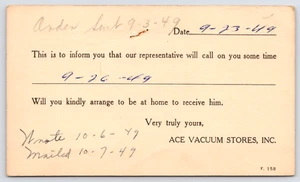 Order Sent 9-3-49
Date 9-23-49
This is to inform you that our representative will call on you some time
9-26-49
Will you kindly arrange to be at home to receive him.
Very truly yours,
ACE VACUUM STORES, INC.
Wrote 10-6-49
Mailed 10-7-49
F. 158